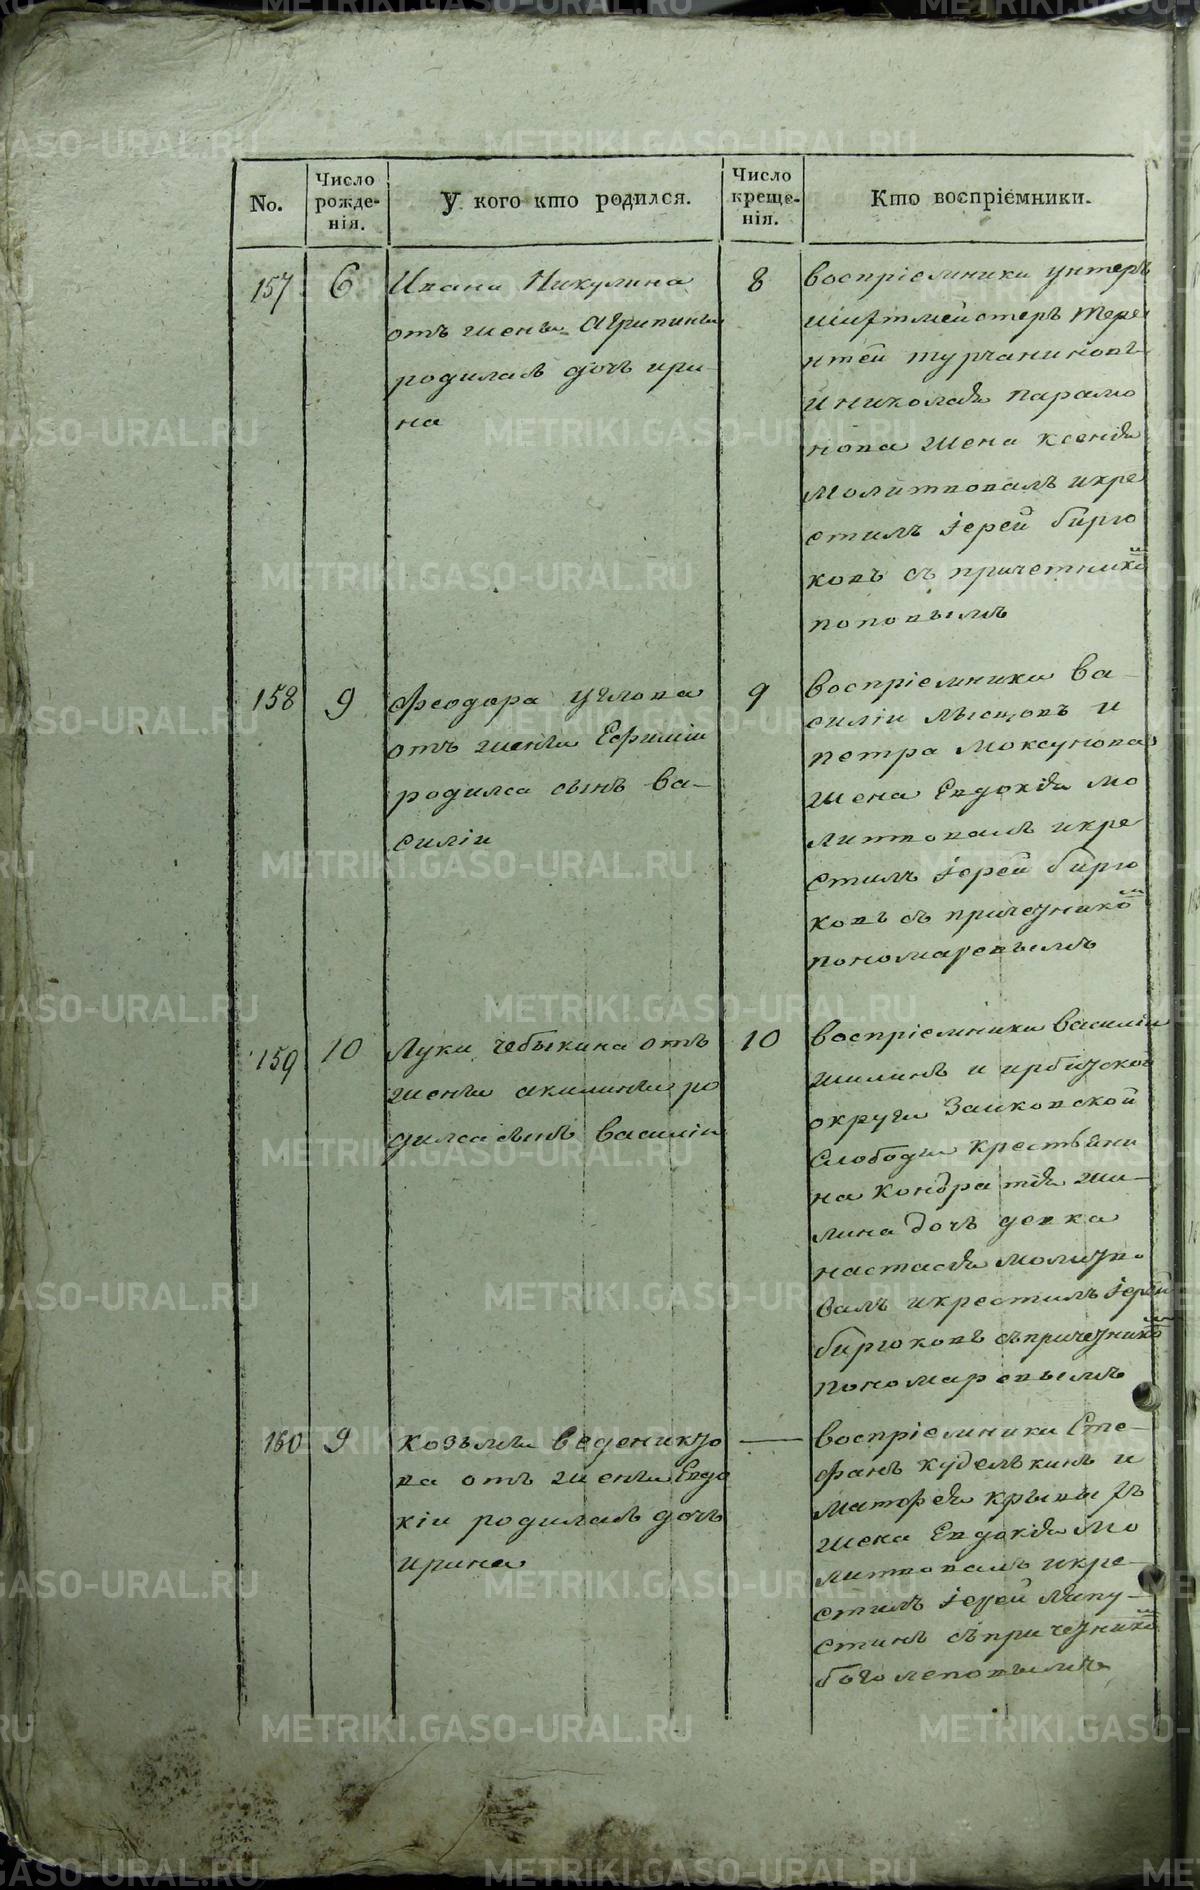 No.
Число рожде-
нія.
У кого кто родился.
Число креще-
нія.
Кто воспріемники.
157
6
Ивана Никулина
отъ жены Агрипины
родилась дочь ири
на
8
воспріемники унтеръ
шихтмейстеръ тере
нтей турчаниновъ
и николая парамо
нова жена ксения
молитвовалъ и кре
стилъ іерей бирю
ковъ съ причетнико
м
поповымъ
158
9
феодора углова
отъ жены Ефиміи
родился сынъ ва-
силіи
9
воспріемники ва-
силіи лысцовъ и
петра моксунова
жена Евдокія мо
литвовалъ и кре
стилъ іерей бирю
ковъ съ причетнико
м
пономаревымъ
159
10
Луки чебыкина отъ
жены акилины ро
дился сынъ василіи
10
воспріемники василіи
шилинъ и ирбитской
округи Заиковской
слободы крестьяни
на кондратія ши-
лина дочь девка
настасья молитво
валъ и крестилъ іерей
бирюковъ съ причетнико
м
пономаревымъ
160
9
козьмы веденикто
ва отъ жены Евдо
кіи родилась дочь
ирина
—
воспріемники Сте-
фанъ куделькинъ и
матфея
жена Евдокія мо
литвовалъ и кре-
стилъ іерей ляпу-
стинъ съ причетнико
м
боголеповымъ
METRIKI.GASO-URAL.RU